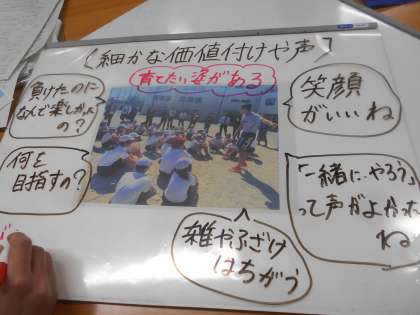 〈細かな価値付けや声〉
育てたい姿がある
負けたのに
なんで楽しかった
の？
笑顔
がいいね
何を
目指すの？
「一緒にやろう」
って声がよかった
ね
雑やふざけ
はちがう